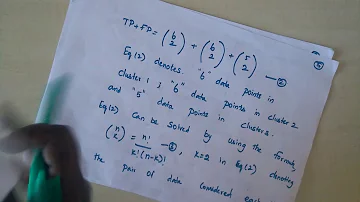 TP+FP = (6 2) + (6 2) + (5 2) — ②
Eq(2) denotes "6" data points in
cluster 1 ; "6" data points in cluster 2
and "5" data points in cluster 3.
Eq(2) can be solved by using the formula,
(n k) = n! / k!(n-k)! — ③, k=2 in Eq(2) denoting
the pair of data considered each